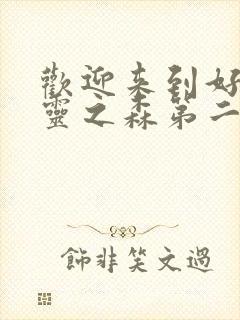 歡迎來到好
靈之森第二
飾非笑文過